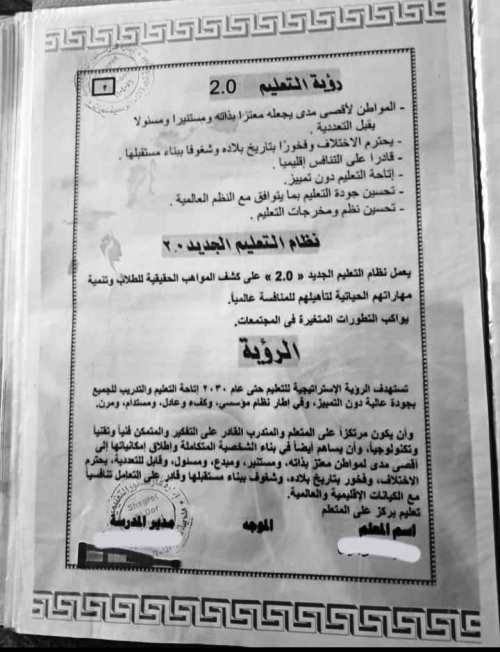 ٢
رؤية التعليم 2.0
- المواطن لأقصى مدى يجعله معتزا بذاته ومستنيرا ومسئولا
يقبل التعددية .
- يحترم الاختلاف وفخورًا بتاريخ بلاده وشغوفا ببناء مستقبلها .
- قادرا على التنافس إقليميا .
- إتاحة التعليم دون تمييز.
- تحسين جودة التعليم بما يتوافق مع النظم العالمية .
- تحسين نظم ومخرجات التعليم .
نظام التعليم الجديد ٢.٠
يعمل نظام التعليم الجديد « 2.0 » على كشف المواهب الحقيقية للطلاب وتنمية
مهاراتهم الحياتية لتأهيلهم للمنافسة عالمياً.
يواكب التطورات المتغيرة فى المجتمعات.
الرؤية
تستهدف الرؤية الإستراتيجية للتعليم حتى عام ٢٠٣٠ إتاحة التعليم والتدريب للجميع
بجودة عالية دون التمييز، وفي إطار نظام مؤسسي، وكفء وعادل، ومستدام، ومرن.
وأن يكون مرتكزاً على المتعلم والمتدرب القادر على التفكير والمتمكن فنياً وتقنياً
وتكنولوجياً، وأن يساهم أيضاً في بناء الشخصية المتكاملة وإطلاق إمكانياتها إلى
أقصى مدى لمواطن معتز بذاته، ومستنير، ومبدع، ومسئول، وقابل للتعددية، يحترم
الاختلاف، وفخور بتاريخ بلاده، وشغوف ببناء مستقبلها وقادر على التعامل تنافسياً
مع الكيانات الإقليمية والعالمية.
تعليم يركز على المتعلم
اسم المعلم الموجه مدير المدرسة